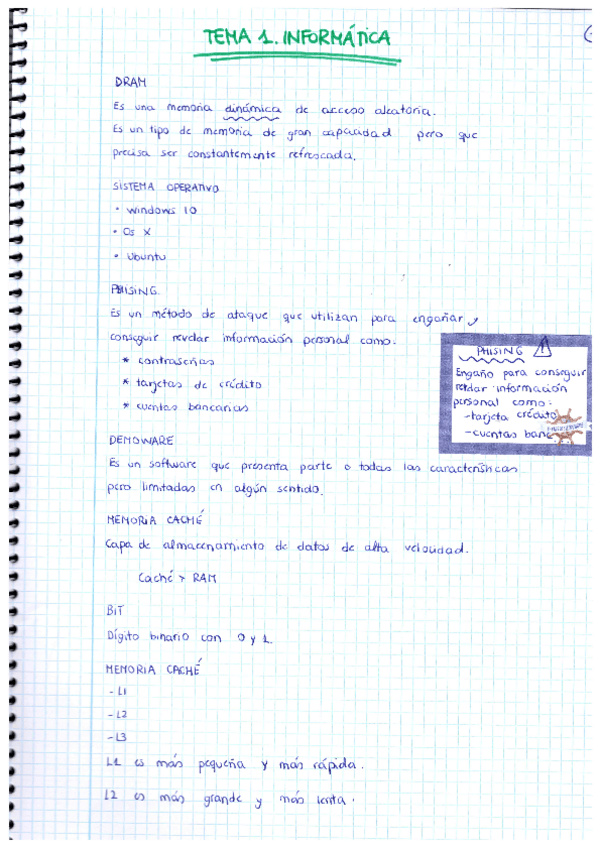 TEMA 1. INFORMÁTICA
DRAM
Es una memoria dinámica de acceso aleatoria.
Es un tipo de memoria de gran capacidad pero que
precisa ser constantemente refrescada.
SISTEMA OPERATIVO
• Windows 10
• Os X
• Ubuntu
PHISING
Es un método de ataque que utilizan para engañar y
conseguir revelar información personal como:
* contraseñas
* tarjetas de crédito
* cuentas bancarias
PHISING
Engaño para conseguir
revelar información
personal como:
-tarjeta crédito
-cuentas banc
DEMOWARE
Es un software que presenta parte o todas las características
pero limitadas en algún sentido.
MEMORIA CACHÉ
Capa de almacenamiento de datos de alta velocidad.
Caché > RAM
BIT
Dígito binario con 0 y 1.
MEMORIA CACHÉ
- L1
- L2
- L3
L1 es más pequeña y más rápida.
L2 es más grande y más lenta.